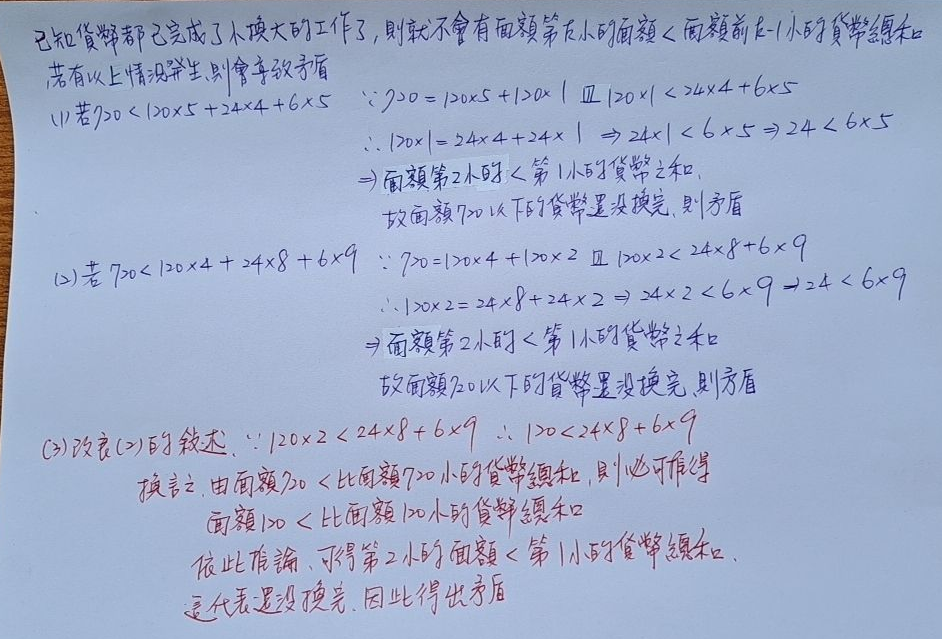 已知貨幣都已完成了小換大的工作了,則就不會有面額第k小的面額<面額前k-1小的貨幣總和
若有以上情況發生,則會導致矛盾
(1)若720<120×5+24×4+6×5 ∵720=120×5+120×1 且 120×1<24×4+6×5
∴120×1=24×4+24×1 ⇒24×1<6×5⇒24<6×5
⇒面額第2小的<第1小的貨幣之和.
故面額720以下的貨幣還沒換完,則矛盾
(2)若720<120×4+24×8+6×9 ∵720=120×4+120×2 且 120×2<24×8+6×9
∴120×2=24×8+24×2⇒24×2<6×9⇒24<6×9
⇒面額第2小的<第1小的貨幣之和
故面額720以下的貨幣還沒換完,則矛盾
(3)改良(2)的敘述. ∵120×2<24×8+6×9 ∴120<24×8+6×9
換言之,由面額720<比面額720小的貨幣總和,則必可推得
面額120<比面額120小的貨幣總和
依此推論,可得第2小的面額<第1小的貨幣總和.
這代表還沒換完,因此得出矛盾